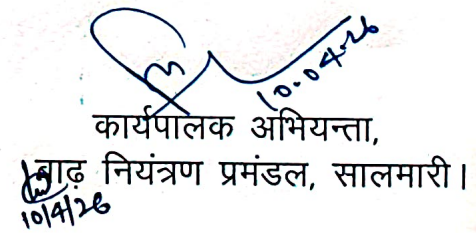 10.04.26
कार्यपालक अभियन्ता,
बाढ़ नियंत्रण प्रमंडल, सालमारी।
10/4/26